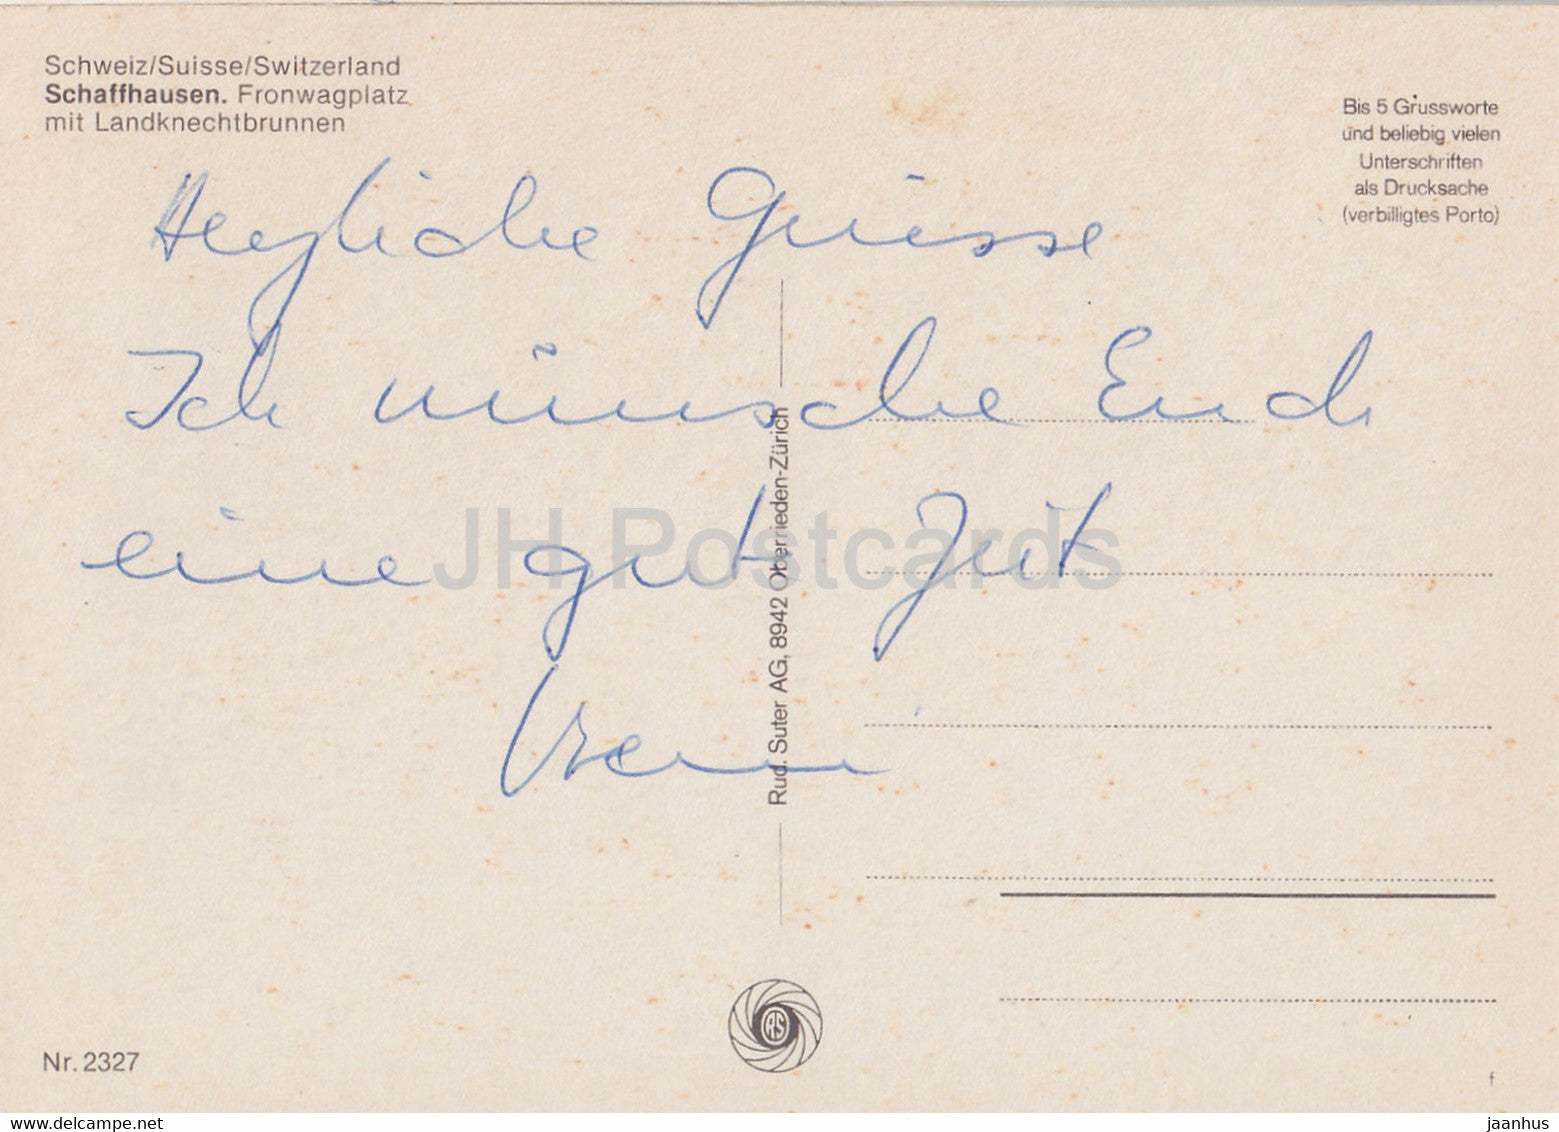 Schweiz/Suisse/Switzerland
Schaffhausen. Fronwagplatz
mit Landknechtbrunnen
Bis 5 Grussworte
und beliebig vielen
Unterschriften
als Drucksache
(verbilligtes Porto)
Herzliche Grüsse
Ich wünsche Euch
eine gute Zeit
Vreni
Rud. Suter AG, 8942 Oberrieden-Zürich
JH Postcards
RS
Nr. 2327
f
www.delcampe.net
jaanhus